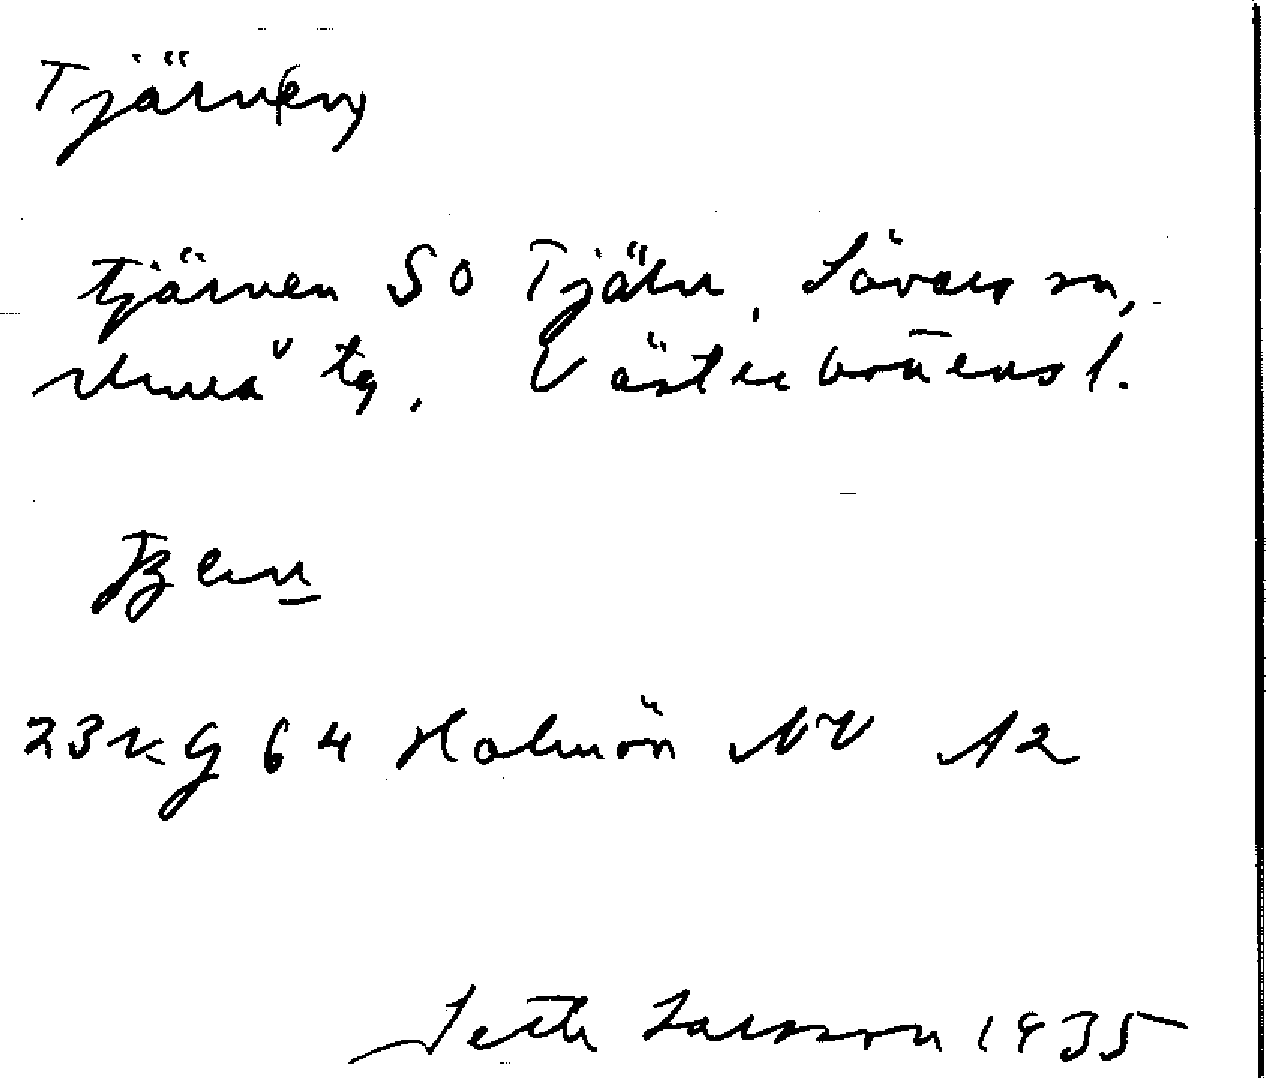 Tjärv(en)
tjärven SO Tjäln, Sävars sn,
Umeå tg. Västerbottens l.
23 K g 64 Holmön NV A2
Seth Larsson 1935